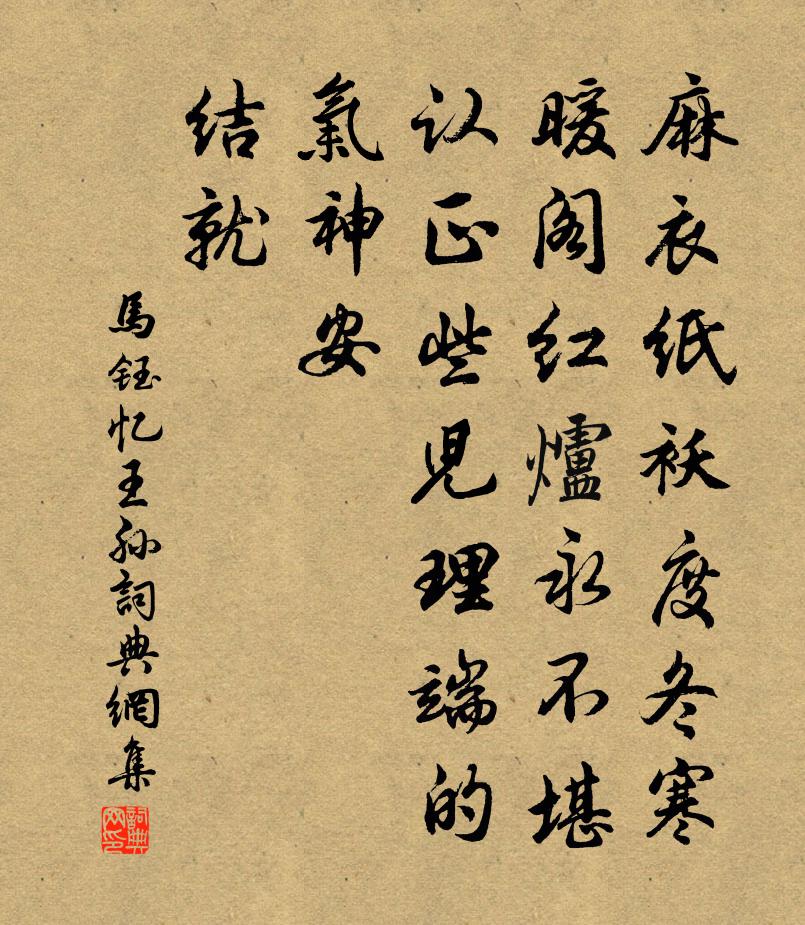 麻衣纸袄度冬寒
暖阁红爐永不堪
认正些児理端的
氣神安
结就
馬鈺忆王孙詞典網集
詞典网印